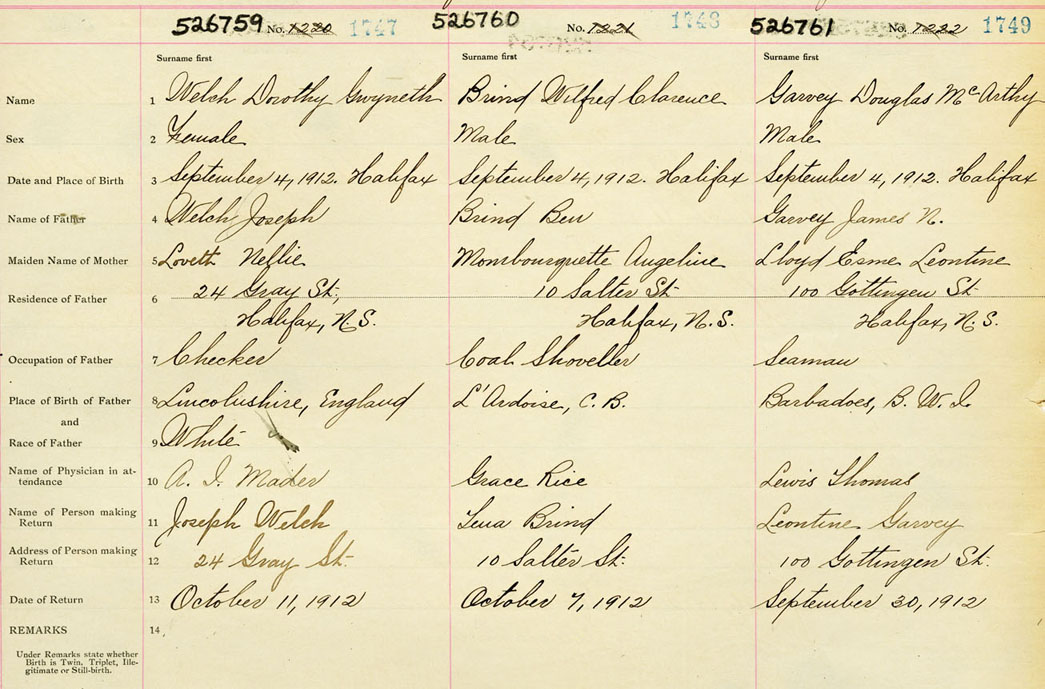 526759 No. 1220 1747 526760 No. 1221 1748 526761 No. 1222 1749
Surname first Surname first Surname first
Name 1 Welch Dorothy Gwyneth Brind Wilfred Clarence Garvey Douglas McArthy
Sex 2 Female Male Male
Date and Place of Birth 3 September 4, 1912. Halifax September 4, 1912. Halifax September 4, 1912. Halifax
Name of Father 4 Welch Joseph Brind Ben Garvey James N.
Maiden Name of Mother 5 Lovett Nellie Mombourquette Angeline Lloyd Esme Leontine
Residence of Father 6 24 Gray St., 10 Salter St. 100 Gottingen St.
Halifax, N.S. Halifax, N.S. Halifax, N.S.
Occupation of Father 7 Checker Coal Shoveller Seaman
Place of Birth of Father 8 Lincolnshire, England L'Ardoise, C.B. Barbadoes, B.W.I.
and
Race of Father 9 White
Name of Physician in at-
tendance 10 A. I. Mader Grace Rice Lewis Thomas
Name of Person making
Return 11 Joseph Welch Lena Brind Leontine Garvey
Address of Person making
Return 12 24 Gray St. 10 Salter St. 100 Gottingen St.
Date of Return 13 October 11, 1912 October 7, 1912 September 30, 1912
REMARKS 14
Under Remarks state whether
Birth is Twin, Triplet, Ille-
gitimate or Still-birth.